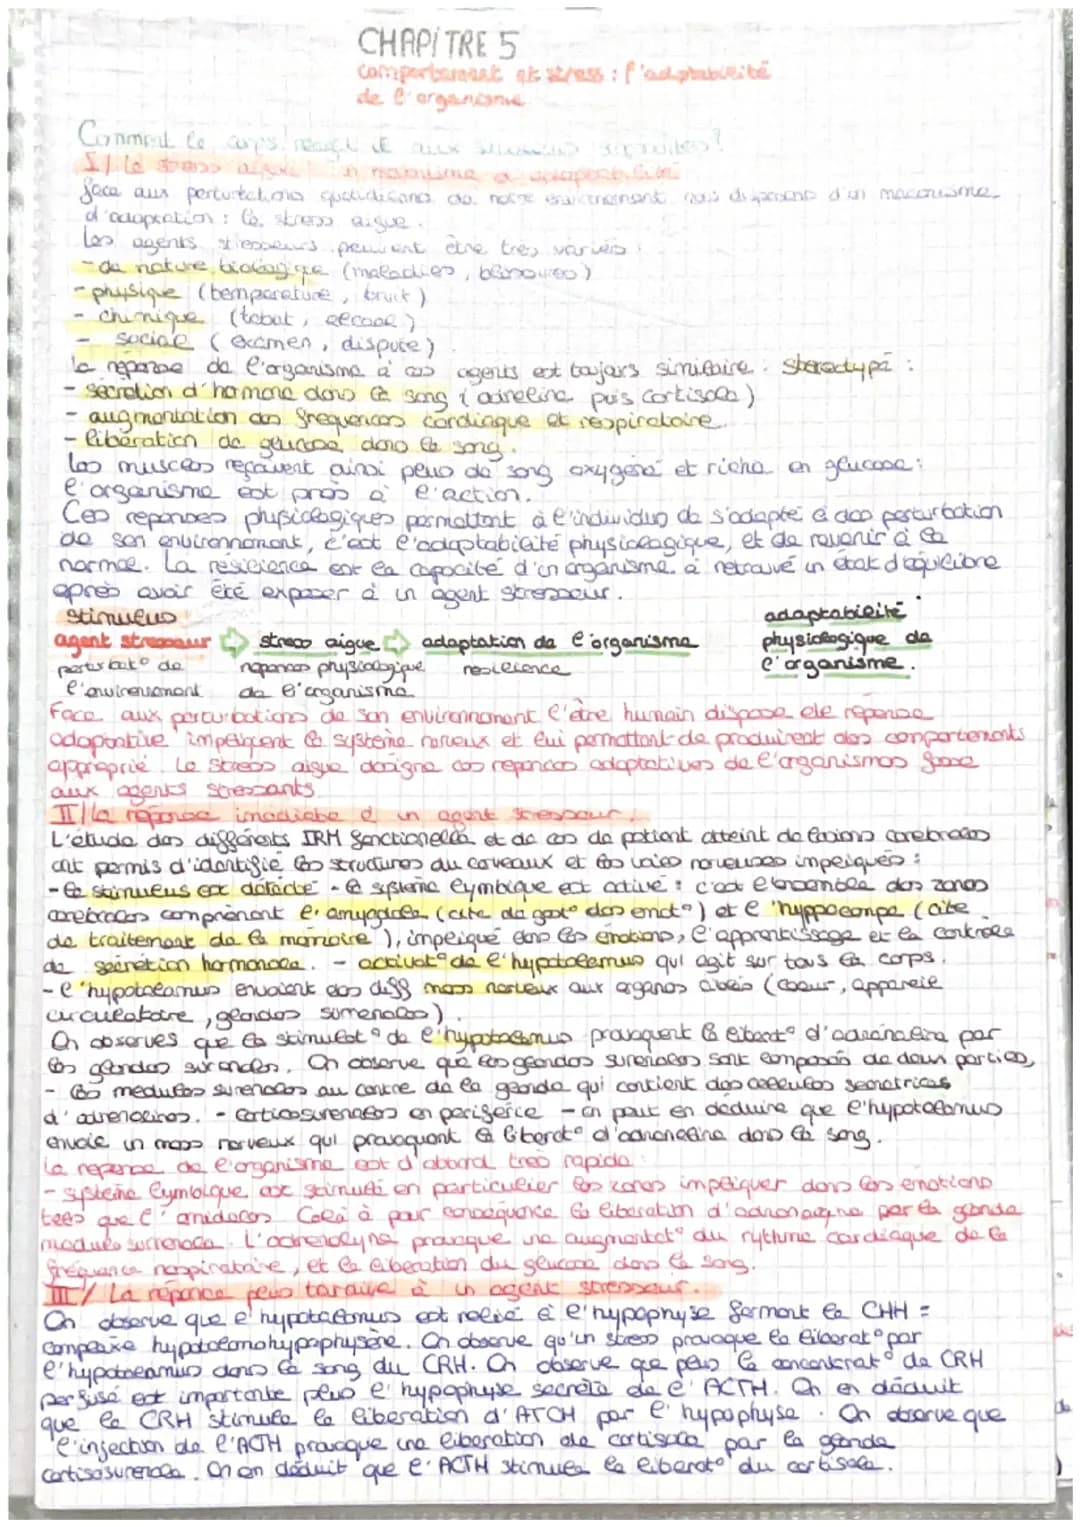 CHAPITRE 5
comportement et stress : l'adaptabilité
de l'organisme
Comment le corps réagit
I/ Le stress aigue
face aux perturbations quotidiens de notre environnement nous disposons d'un mécanisme
d'adaptation : le stress aigue.
Les agents stresseurs peuvent être très variés :
- de nature biologique (maladies, blessures)
- physique (température, bruit)
- chimique (tabat, alcool)
- sociale (examen, dispute)
la réponse de l'organisme à ces agents est toujours similaire. Stéréotypé :
- sécrétion d'hormone dans le sang (adréline puis cortisole)
- augmentation des fréquences cardiaque et respiratoire
- libération de glucose dans le sang.
Les muscles reçoivent ainsi plus de sang oxygéné et riche en glucose :
l'organisme est près à l'action.
Ces réponses physiologiques permettent à l'individu de s'adapté à des perturbation
de son environnement, c'est l'adaptabilité physiologique, et de revenir à la
normale. La résicience est la capacité d'un organisme à retrouvé un état d'équilibre
après avoir été exposer à un agent stresseur.
stimulus
agent stresseur ⇨ stress aigue ⇨ adaptation de l'organisme
perturbat° de réponses physiologique résilience
l'environnement de l'organisme
adaptabilité
physiologique de
l'organisme.
Face aux perturbations de son environnement l'être humain dispose de réponse
adaptative impliquent le système nerveux et lui permettant de produirent des comportements
approprié. Le stress aigue désigne ces réponses adaptatives de l'organismes face
aux agents stressants.
II/ la réponse imédiate à un agent stresseur.
L'étude des différents IRM fonctionelle et de cas de patient atteint de lésions cérébrales
ont permis d'identifié les structures du cerveaux et les voies nerveuses impliqués :
- le stimulus est détécté - le système lymbique est activé : c'est l'ensemble des zones
cérébrales comprenent l'amygdale (cite de gest° des émot°) et l'hyppocampe (cite
de traitement de la mémoire), impliqué dans les émotions, l'apprentissage et le contrôle
de sécrétion hormonale. - activat° de l'hypotalamus qui agit sur tous le corps.
- l'hypotalamus envoient des diff mess nerveux aux organes cibles (coeur, appareil
circulatoire, glandes surrénales).
On observes que la stimulat° de l'hypotalamus provoquent la libérat° d'adrénaline par
les glandes surrénales. On observe que les glandes surénales sont composés de deux parties,
- les médullos surénales au centre de la glande qui contient des cellules sécrétrices
d'adrénalines. - corticosurénales en périférie - on peut en déduire que l'hypotalamus
envoie un mess nerveux qui provoquent la libérat° d'adrénaline dans le sang.
La réponse de l'organisme est d'abord très rapide :
- système lymbique est stimulé en particulier les zones impliquer dans les émotions
tels que l'amidales. Cela à pour conséquence la libération d'adrénaline par la glande
médulo surrénale. L'adrénalyne provoque une augmentat° du rythme cardiaque de la
fréquence respiratoire, et la libération du glucose dans le sang.
III/ La réponse plus tardive à un agent stresseur.
On observe que l'hypotalamus est relié à l'hypophyse formant le CHH =
complexe hypotalamohypophysère. On observe qu'un stress provoque la libérat° par
l'hypotalamus dans le sang du CRH. On observe que plus la concentrat° de CRH
perfusé est importante plus l'hypophyse sécrète de l'ACTH. On en déduit
que le CRH stimule la libération d'ATCH par l'hypophyse. On observe que
l'injection de l'ACTH provoque une libération de cortisole par la glande
cortisosurénale. On en déduit que l'ACTH stimules la libérat° du cortisole.